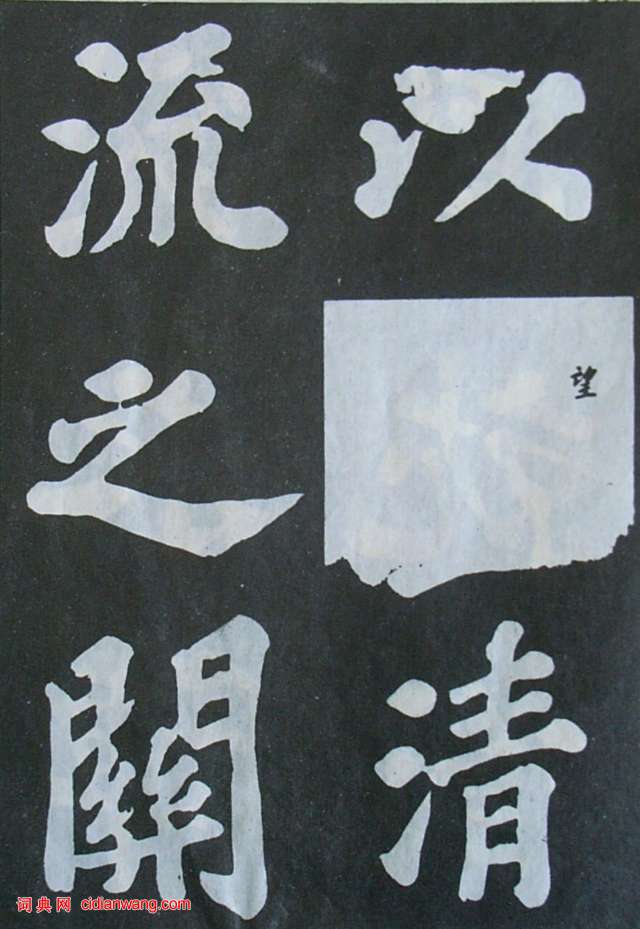 以望清
流之關
词典网 cidianwang.com